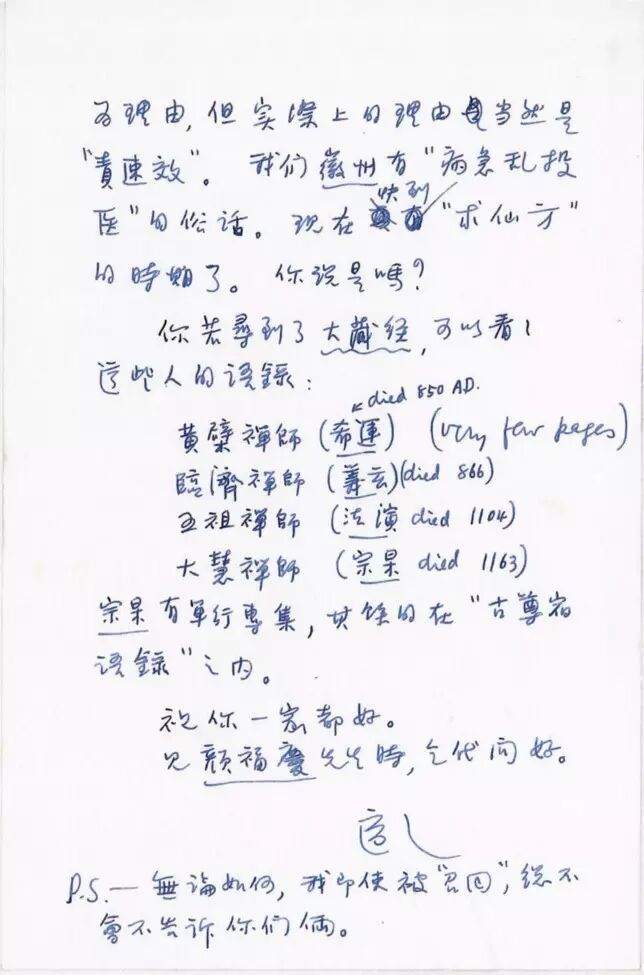 为理由，但实際上的理由当然是
"責速效"。我们徽州有"病急乱投
医"的俗话。现在快到"求仙方"
的時期了。你说是嗎？
你若尋到了大藏经，可以看看
這些人的语錄：
died 850 A.D.
黃檗禅師（希運）(very few pages)
臨濟禅師（義玄）(died 866)
五祖禅師（法演 died 1104）
大慧禅師（宗杲 died 1163）
宗杲有單行專集，其餘的在"古尊宿
语錄"之内。
祝你一家都好。
见颜福慶先生時，乞代问好。
適之
P.S.—無論如何，我即使被"召回"，總不
會不告诉你们俩。